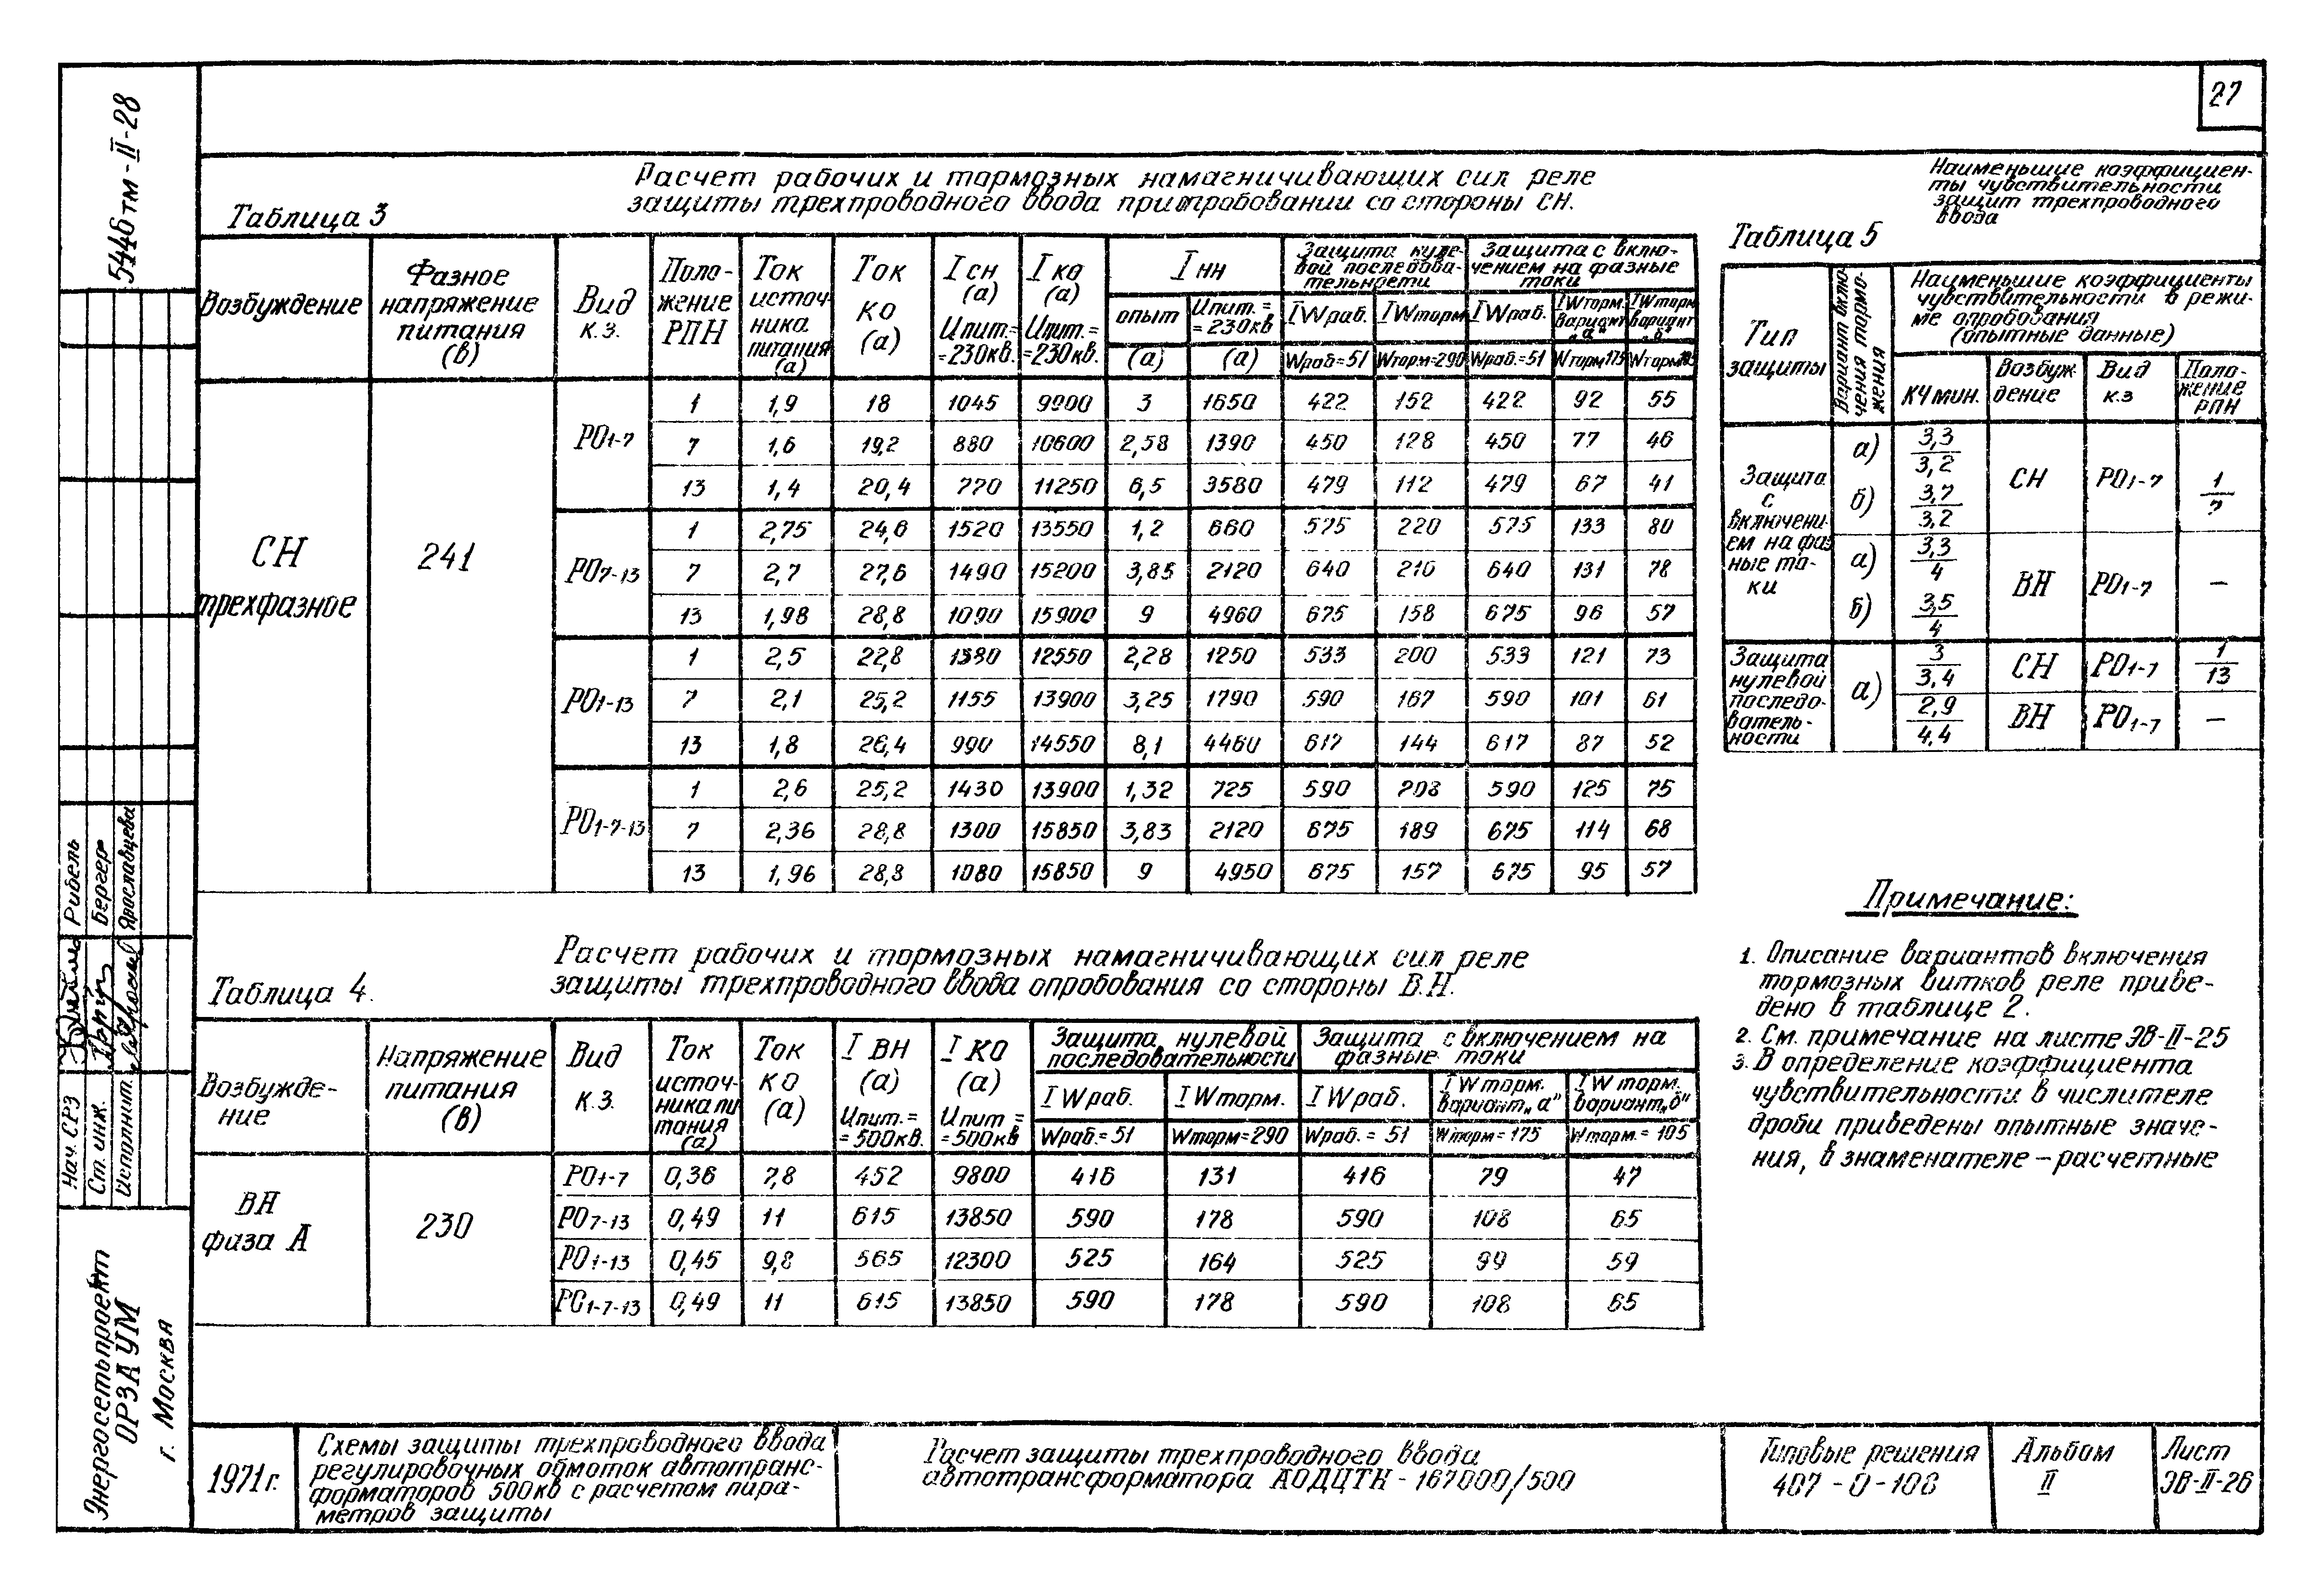 27
5446тм-II-28
Таблица 3
Расчет рабочих и тормозных намагничивающих сил реле
защиты трехпроводного ввода при опробовании со стороны СН.
Возбуждение
Фазное напряжение питания (в)
Вид к.з.
Положение РПН
Ток источника питания (а)
Ток КО (а)
I сн (а) Uпит.= =230кв.
I ко (а) Uпит.= =230кв.
I нн
опыт (а)
Uпит.= =230кв (а)
Защита нулевой последовательности
Защита с включением на фазные токи
IWраб. Wраб=51
IWторм Wторм=290
IWраб. Wраб.=51
IWторм. вариант „а" Wторм175
IWторм вариант „б"
СН трехфазное 241
РО1-7
1 1,9 18 1045 9900 3 1650 422 152 422 92 55
7 1,6 19,2 880 10600 2,58 1390 450 128 450 77 46
13 1,4 20,4 770 11250 6,5 3580 479 112 479 67 41
РО7-13
1 2,75 24,6 1520 13550 1,2 660 575 220 575 133 80
7 2,7 27,6 1490 15200 3,85 2120 640 216 640 131 78
13 1,98 28,8 1090 15900 9 4960 675 158 675 96 57
РО1-13
1 2,5 22,8 1380 12550 2,28 1250 533 200 533 121 73
7 2,1 25,2 1155 13900 3,25 1790 590 167 590 101 61
13 1,8 26,4 990 14550 8,1 4460 617 144 617 87 52
РО1-7-13
1 2,6 25,2 1430 13900 1,32 725 590 208 590 125 75
7 2,36 28,8 1300 15850 3,83 2120 675 189 675 114 68
13 1,96 28,8 1080 15850 9 4950 675 157 675 95 57
Таблица 4.
Расчет рабочих и тормозных намагничивающих сил реле
защиты трехпроводного ввода опробования со стороны В.Н.
Возбуждение
Напряжение питания (в)
Вид К.З.
Ток источника питания (а)
Ток КО (а)
I ВН (а) Uпит.= =500кв.
I КО (а) Uпит = =500кв
Защита нулевой последовательности
Защита с включением на фазные токи
IWраб. Wраб.=51
IWторм. Wторм=290
IWраб. Wраб.= 51
IWторм. вариант „а" Wторм=175
IWторм. вариант „б" Wторм.=105
ВН фаза А 230
РО1-7 0,36 7,8 452 9800 416 131 416 79 47
РО7-13 0,49 11 615 13850 590 178 590 108 65
РО1-13 0,45 9,8 565 12300 525 164 525 99 59
РО1-7-13 0,49 11 615 13850 590 178 590 108 65
Наименьшие коэффициен-
ты чувствительности
защит трехпроводного
ввода
Таблица 5
Тип защиты
Вариант включения торможения
Наименьшие коэффициенты
чувствительности в режи-
ме опробования
(опытные данные)
КЧ мин.
Возбуждение
Вид к.з
Положение РПН
Защита с включением на фазные токи
а) 3,3/3,2
б) 3,7/3,2
СН РО1-7 1/7
а) 3,3/4
б) 3,5/4
ВН РО1-7 —
Защита нулевой последовательности
а)
3/3,4 СН РО1-7 1/13
2,9/4,4 ВН РО1-7 —
Примечание:
1. Описание вариантов включения
тормозных витков реле приве-
дено в таблице 2.
2. См. примечание на листе ЭВ-II-25
3. В определение коэффициента
чувствительности в числителе
дроби приведены опытные значе-
ния, в знаменателе – расчетные
Нач. СРЗ Рибель
Ст. инж. Бергер
Исполнит. Ярославцева
Энергосетьпроект
ОРЗАУМ
г. Москва
1971г.
Схемы защиты трехпроводного ввода
регулировочных обмоток автотранс-
форматоров 500кв с расчетом пара-
метров защиты
Расчет защиты трехпроводного ввода
автотрансформатора АОДЦТН - 167000/500
Типовые решения
407 - 0 - 108
Альбом
II
Лист
ЭВ-II-26